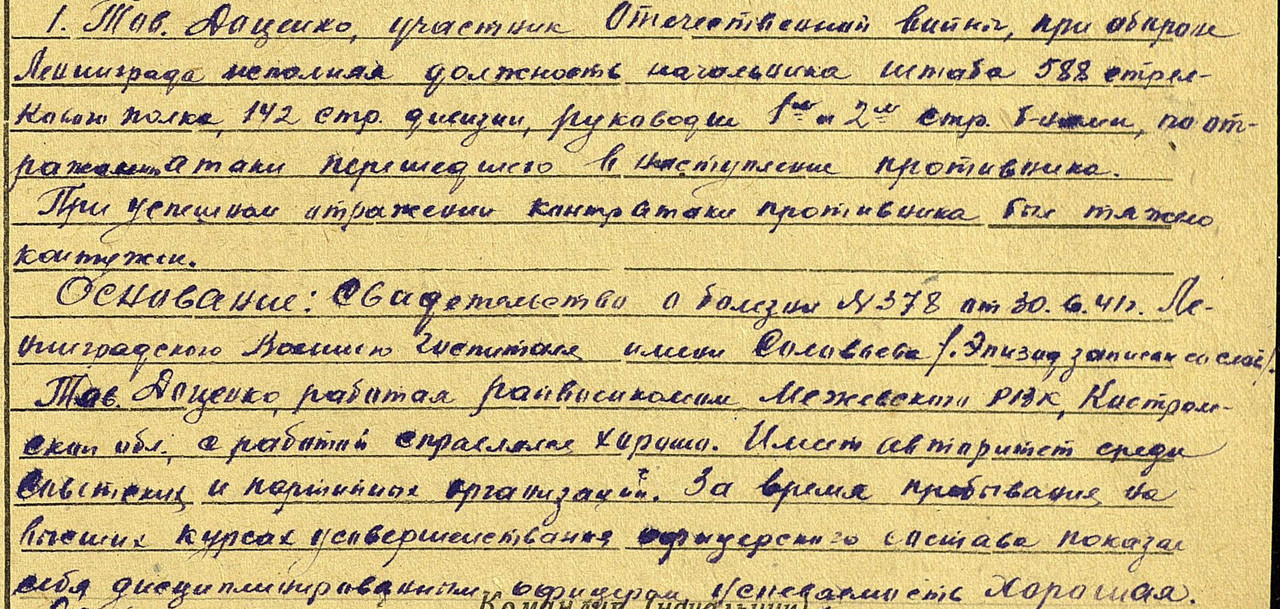 1. Тов. Доценко, участник Отечественной войны, при обороне
Ленинграда исполняя должность начальника штаба 588 стрел-
кового полка, 142 стр. дивизии, руководил 1м и 2м стр. б-нами, по от-
ражению атаки перешедшего в наступление противника.
При успешном отражении контратаки противника был тяжело
контужен.
Основание: Свидетельство о болезни № 378 от 30.6.41г. Ле-
нинградского Военного госпиталя имени Соловьева /. Эпизод записан со слов/.
Тов. Доценко, работая райвоенкомом Межевского РВК, Костром-
ской обл., с работой справлялся хорошо. Имеет авторитет среди
Советских и партийных организаций. За время пребывания на
высших курсах усовершенствования офицерского состава показал
себя дисциплинированным офицером успеваемость Хорошая.
Командир (начальник)